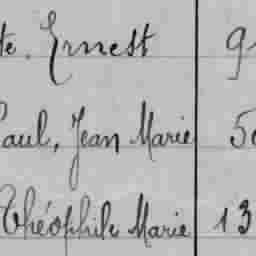 te. Ernest 9
Paul, Jean Marie 50
Théophile Marie 13